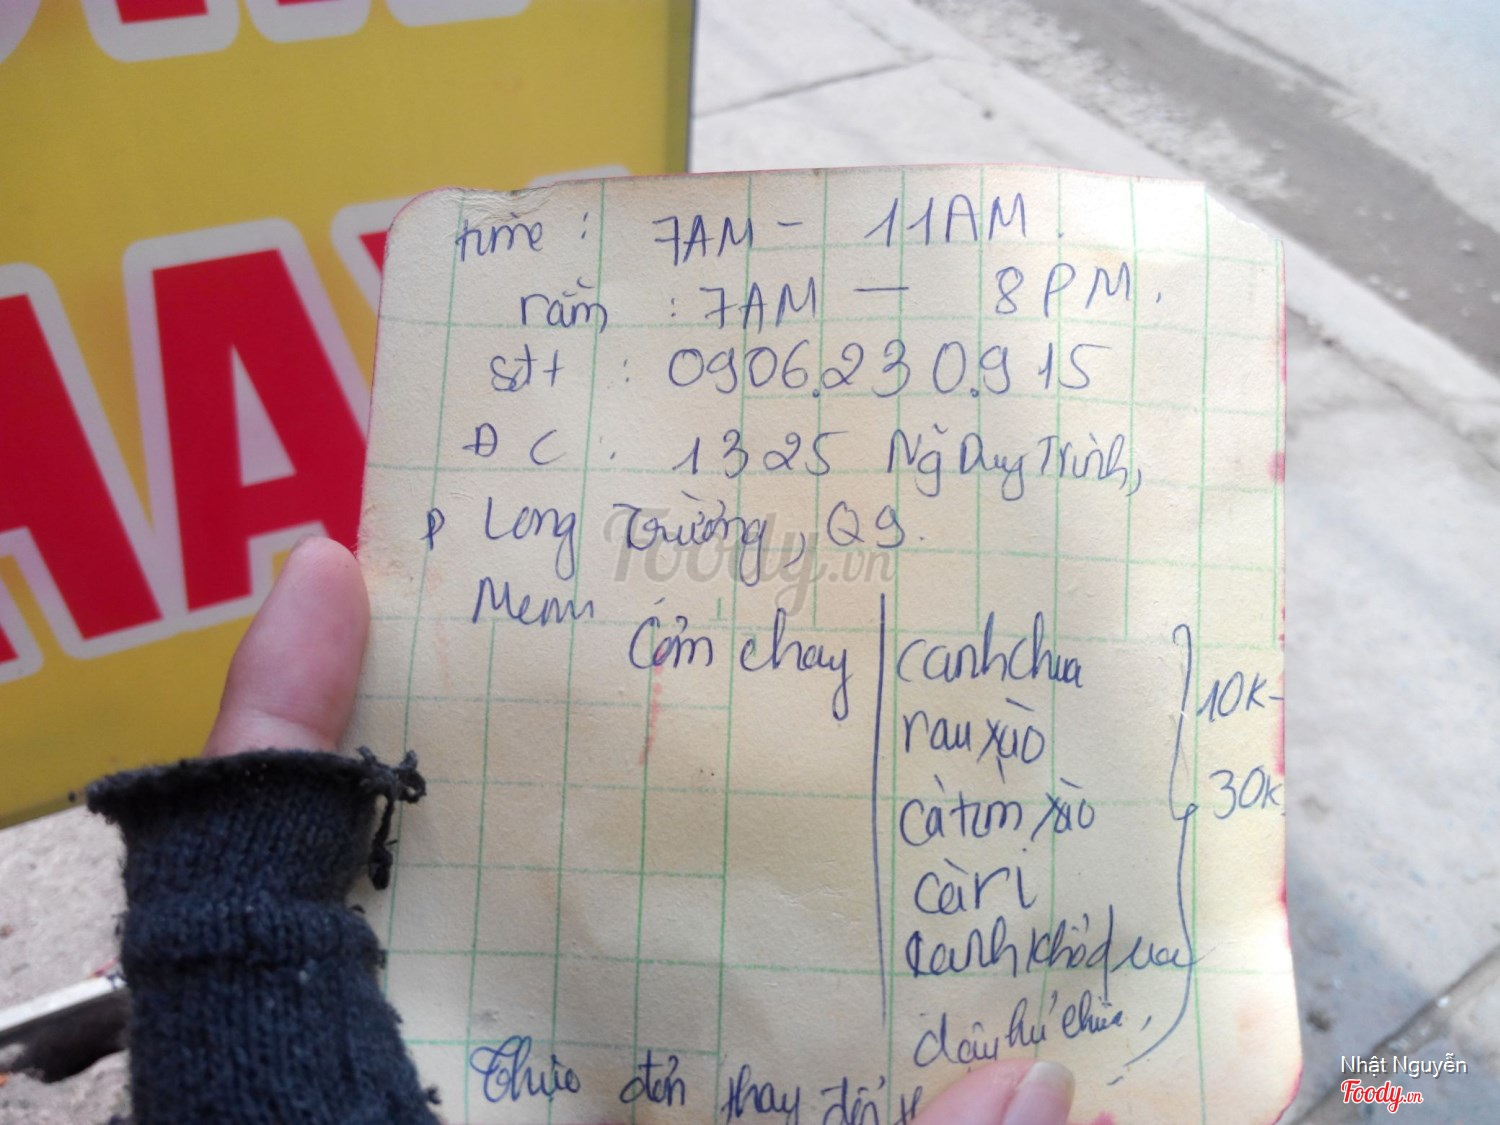 time : 7AM - 11AM.
rằm : 7AM — 8PM.
sđt : 0906.230.915
ĐC : 1325 Ng Duy Trinh,
P Long Trường, Q9.
Menu
Cơm chay
canh chua
rau xào
cà tím xào
cà ri
canh khổ qua
đậu hũ chiên,
10K-
30K.
Thực đơn thay đổi
Foody.vn
Nhật Nguyễn
Foody.vn